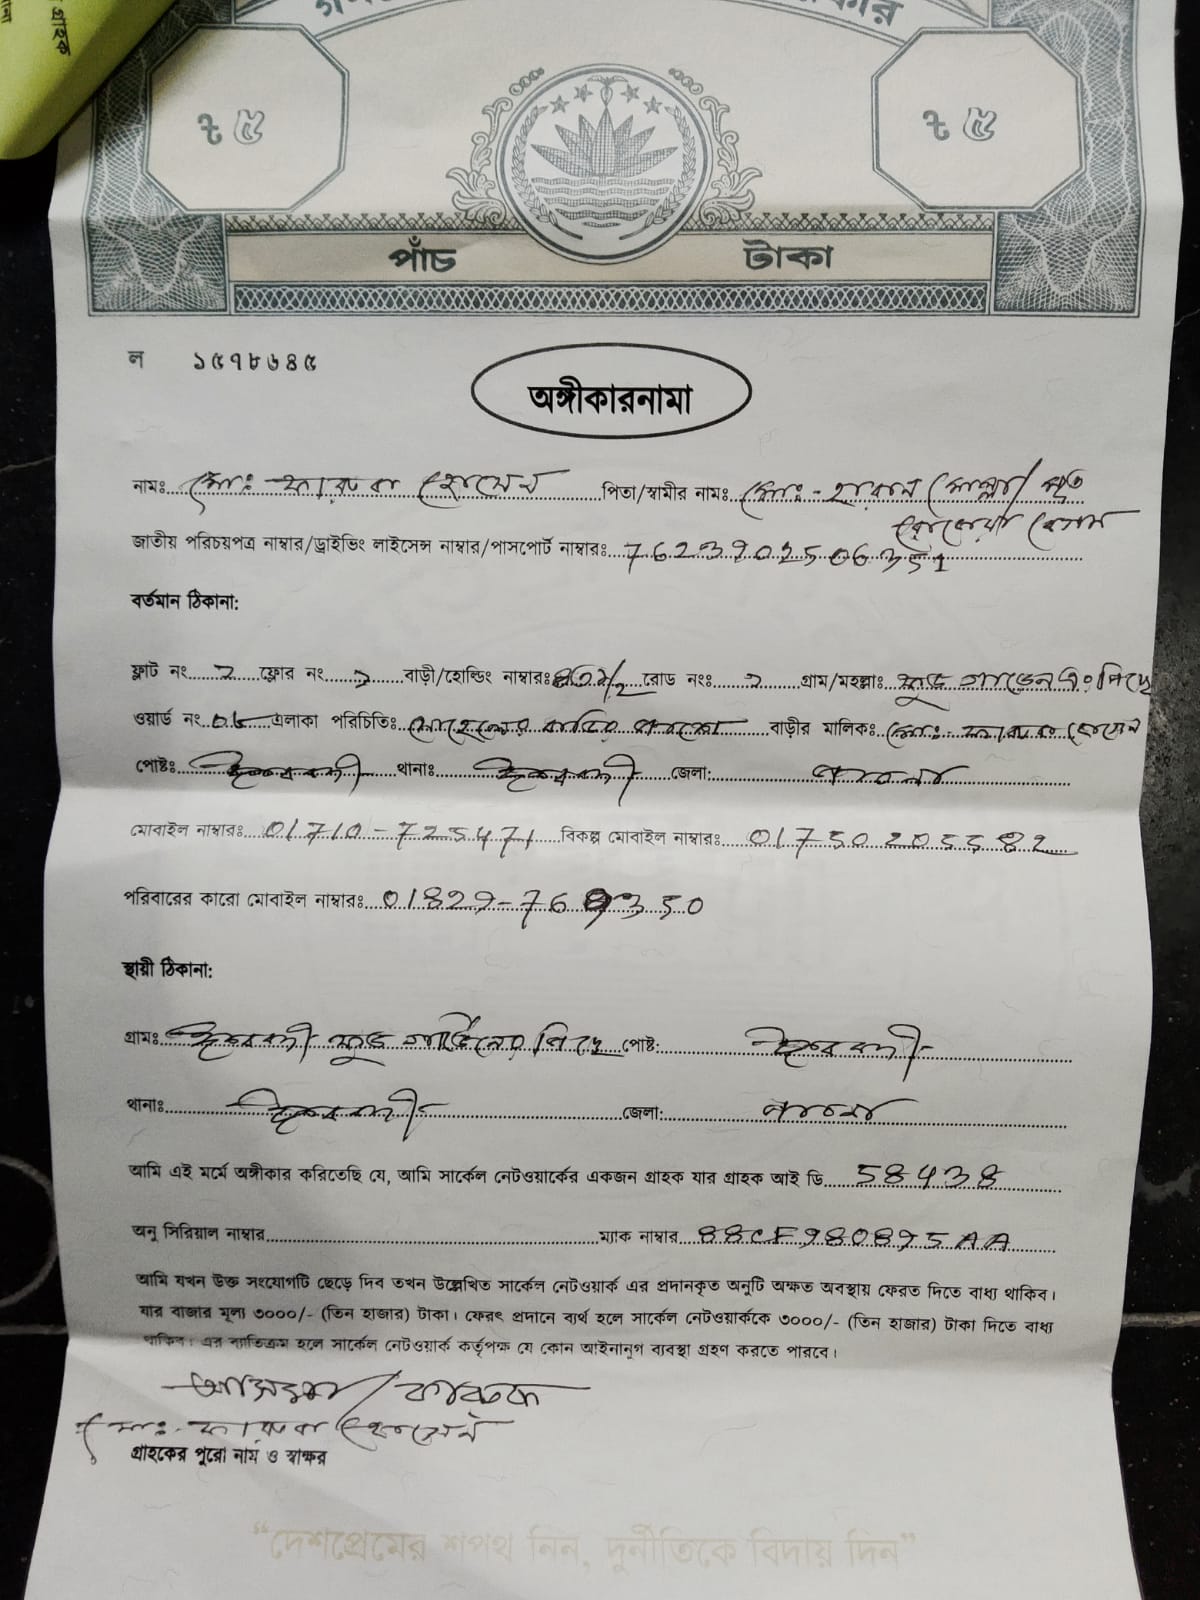 গ্রাহক
৳ ৫
৳ ৫
পাঁচ টাকা
ল ১৫৭৮৬৪৫
অঙ্গীকারনামা
নামঃ মোঃ ফারুক হোসেন পিতা/স্বামীর নামঃ মোঃ - হারান মোল্লা/
জাতীয় পরিচয়পত্র নাম্বার/ড্রাইভিং লাইসেন্স নাম্বার/পাসপোর্ট নাম্বারঃ 7623902506351
বর্তমান ঠিকানা:
ফ্লাট নং ২ ফ্লোর নং ২ বাড়ী/হোল্ডিং নাম্বারঃ রোড নংঃ ২ গ্রাম/মহল্লাঃ ফুড গার্ডেন এর পিছে
ওয়ার্ড নং ০৬ এলাকা পরিচিতিঃ বাড়ির পাশে বাড়ীর মালিকঃ মোঃ ফারুক হোসেন
পোষ্টঃ ঈশ্বরদী থানাঃ ঈশ্বরদী জেলা: পাবনা
মোবাইল নাম্বারঃ 01710-725471 বিকল্প মোবাইল নাম্বারঃ
পরিবারের কারো মোবাইল নাম্বারঃ
স্থায়ী ঠিকানা:
গ্রামঃ ঈশ্বরদী ফুড গার্ডেনের পিছে পোষ্ট: ঈশ্বরদী
থানাঃ ঈশ্বরদী জেলা: পাবনা
আমি এই মর্মে অঙ্গীকার করিতেছি যে, আমি সার্কেল নেটওয়ার্কের একজন গ্রাহক যার গ্রাহক আই ডি 58438
অনু সিরিয়াল নাম্বার ম্যাক নাম্বার
আমি যখন উক্ত সংযোগটি ছেড়ে দিব তখন উল্লেখিত সার্কেল নেটওয়ার্ক এর প্রদানকৃত অনুটি অক্ষত অবস্থায় ফেরত দিতে বাধ্য থাকিব।
যার বাজার মূল্য ৩০০০/- (তিন হাজার) টাকা। ফেরৎ প্রদানে ব্যর্থ হলে সার্কেল নেটওয়ার্ককে ৩০০০/- (তিন হাজার) টাকা দিতে বাধ্য
থাকিব। এর ব্যতিক্রম হলে সার্কেল নেটওয়ার্ক কর্তৃপক্ষ যে কোন আইনানুগ ব্যবস্থা গ্রহণ করতে পারবে।
মোঃ ফারুক হোসেন
গ্রাহকের পুরো নাম ও স্বাক্ষর
“দেশপ্রেমের শপথ নিন, দুর্নীতিকে বিদায় দিন”